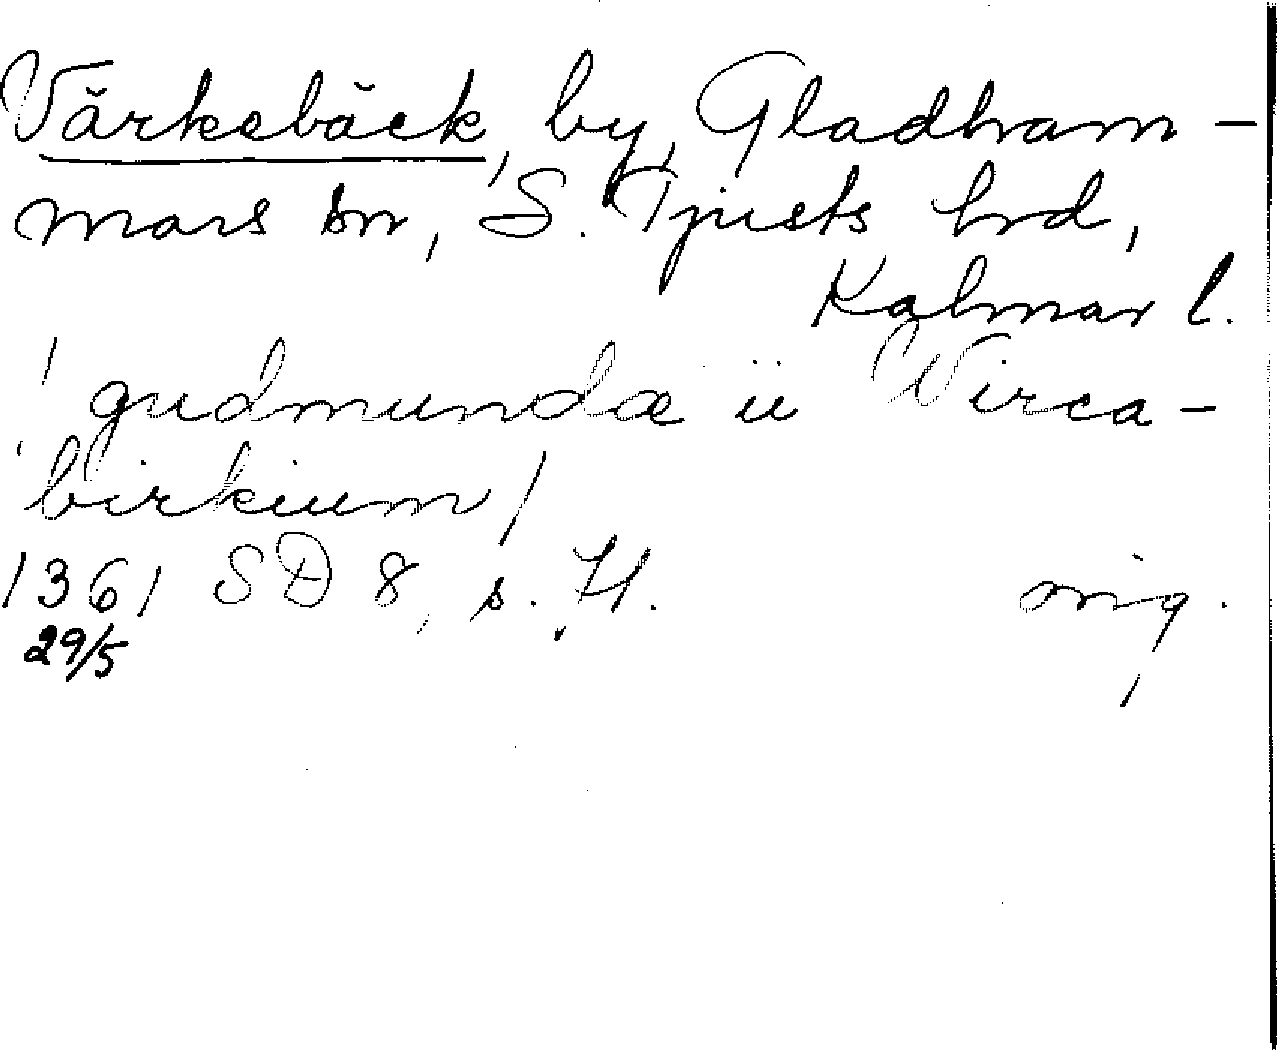 Värkebäck, by, Gladham-
mars sn, S. Tjusts hrd,
Kalmar l.
/ gudmundæ ii Wirca-
birkium /
1361 SD 8, s. 71. orig.
29/5